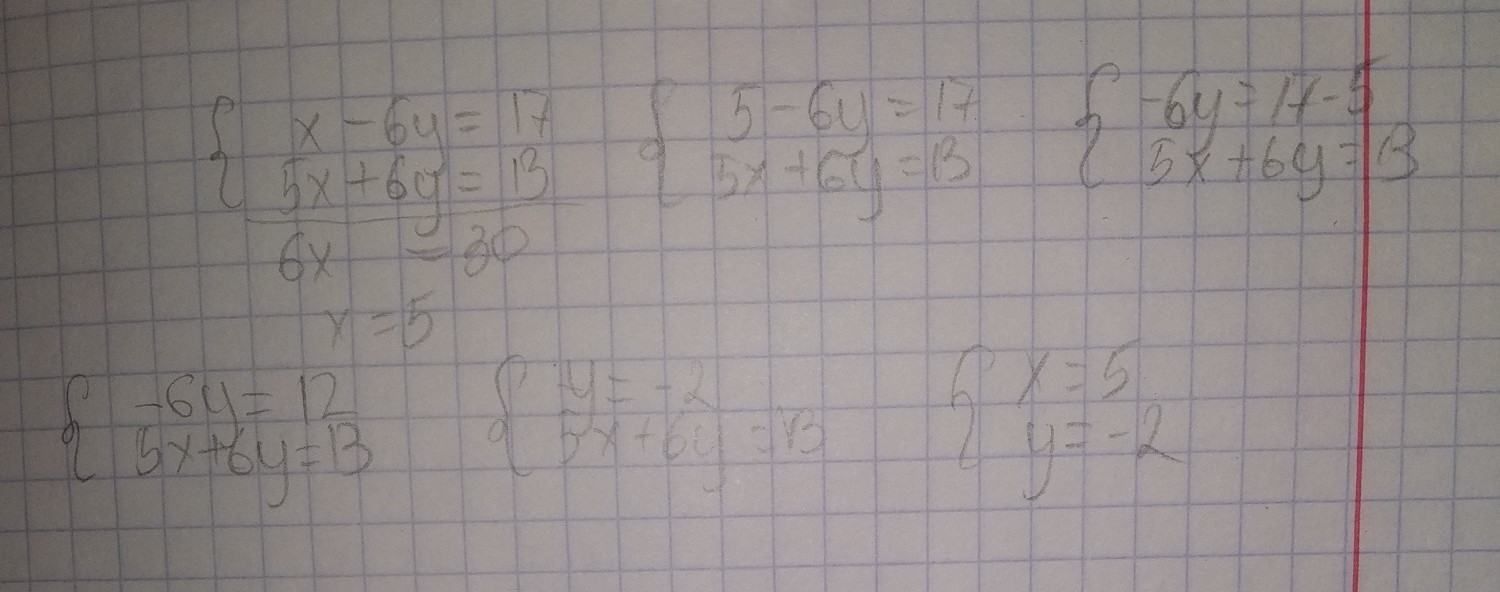 { x - 6y = 17
5x + 6y = 13
6x = 30
x = 5
{ 5 - 6y = 17
5x + 6y = 13
{ -6y = 17 - 5
5x + 6y = 13
{ -6y = 12
5x + 6y = 13
{ y = -2
5x + 6y = 13
{ x = 5
y = -2